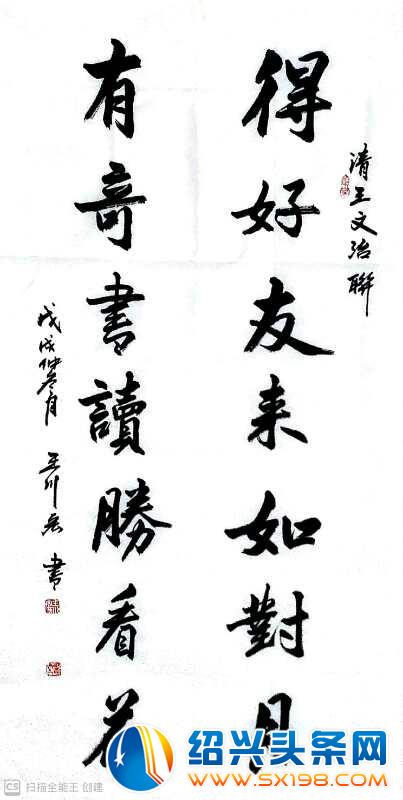 清王文治聯
得好友来如對月
有奇書讀勝看花
戊戌仲冬月 王川 書
绍兴头条网
WWW.SX198.COM
CS 扫描全能王 创建